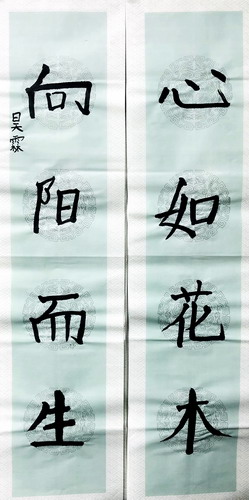 心如花木
向阳而生
昊霖